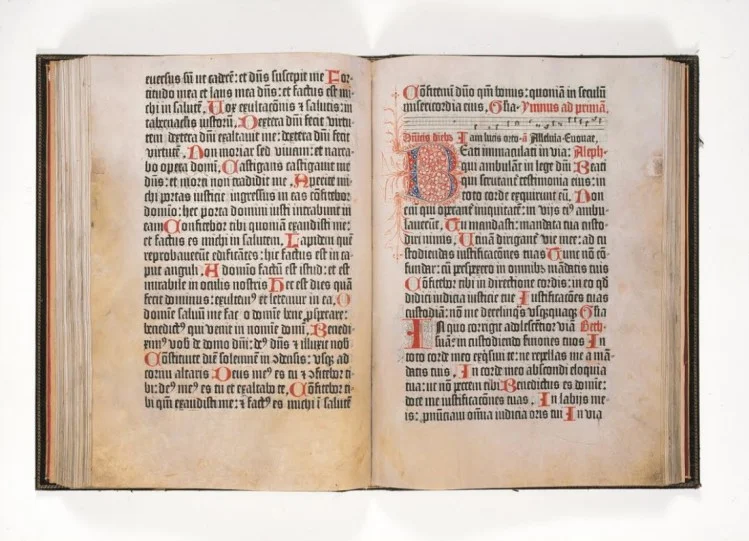 euersus sū ut caderē: et dn̄s suscepit me For-
titudo mea et laus mea dn̄s: et factus est mi-
chi in salutē. Vox exultacōnis & salutis: in
tabernaclis iustorū. Dextera dn̄i fecit virtu-
tem dextera dn̄i exaltauit me: dextera dn̄i fecit
virtutē. Non moriar sed viuam: et narra-
bo opera domi. Castigans castigauit me
dn̄s: et morti non tradidit me. Aperite mi-
chi portas iusticie ingressus in eas cōfitebor
domīo: hec porta domini iusti intrabunt in
eam Confitebor tibi quoniā exaudisti me:
et factus es michi in salutem. Lapidem quē
reprobauerūt edificātes: hic factus est in ca-
put anguli. A domīo factū est istud: et est
mirabile in oculis nostris Hec est dies quā
fecit dominus: exultem⁹ et letemur in ea. O
domīe saluū me fac o domīe bene ꝓsperare:
benedict⁹ qui venit in nomīe domī. Benedi-
xim⁹ vob̄ de domo dn̄i: de⁹ dn̄s & illuxit nob̄
Cōstituite diē solennē in ↄdensis: vsq̨ ad
cornu altaris. Deus me⁹ es tu et ↄfitebor ti-
bi: de⁹ me⁹ es tu et exaltabo te. Cōfitebor ti-
bi qm̄ exaudisti me: & fact⁹ es michi ī salutē
Cōfitemī dn̄o qm̄ bonus: quoniā in seculū
misericordia eius. Gl̄ia. Ymnus ad primā.
Iam lucis orto. ā Alleluia. Euouae.
Beati immaculati in via: Aleph.
qui ambulāt in lege dn̄i Beati
qui scrutant̄ testimonia eius: in
toto corde exquirunt eū. Non
eni qui operant̄ iniquitatē: in vijs ei⁹ ambu-
lauerūt. Tu mandasti: mandata tua custo-
diri nimis. Utinā dirigant̄ vie mee: ad cu-
stodiendas iustificacōnes tuas Tunc nō cō-
fundar: cū perspexero in omnib⁹ mādatis tuis
Cōfitebor tibi in directione cordis: in eo qd̄
didici iudicia iusticie tue Iustificacōnes tuas
custodiā: nō me derelinq̄s vsq̨quaq̨. Gl̄ia
In quo corrigit adolescētior viā Beth.
suā: in custodiendo s̄mones tuos In
toto corde meo exq̄siui te: ne repellas me a mā-
datis tuis. In corde meo abscondi eloquia
tua: ut nō peccem tibi Benedictus es domīe:
doce me iustificacōnes tuas. In labijs me-
is: ꝓnūciaui om̄ia iudicia oris tui In via